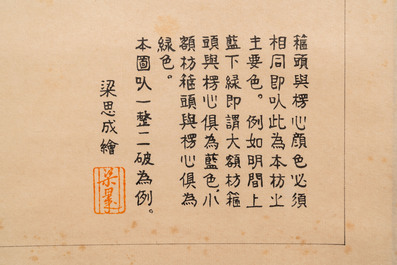 箍頭與楞心顏色必須
相同即以此為本枋之
主要色。例如明間上
藍下綠即謂大額枋箍
頭與楞心俱為藍色，小
額枋箍頭與楞心俱為
綠色。
本圖以一整二破為例。
梁思成繪